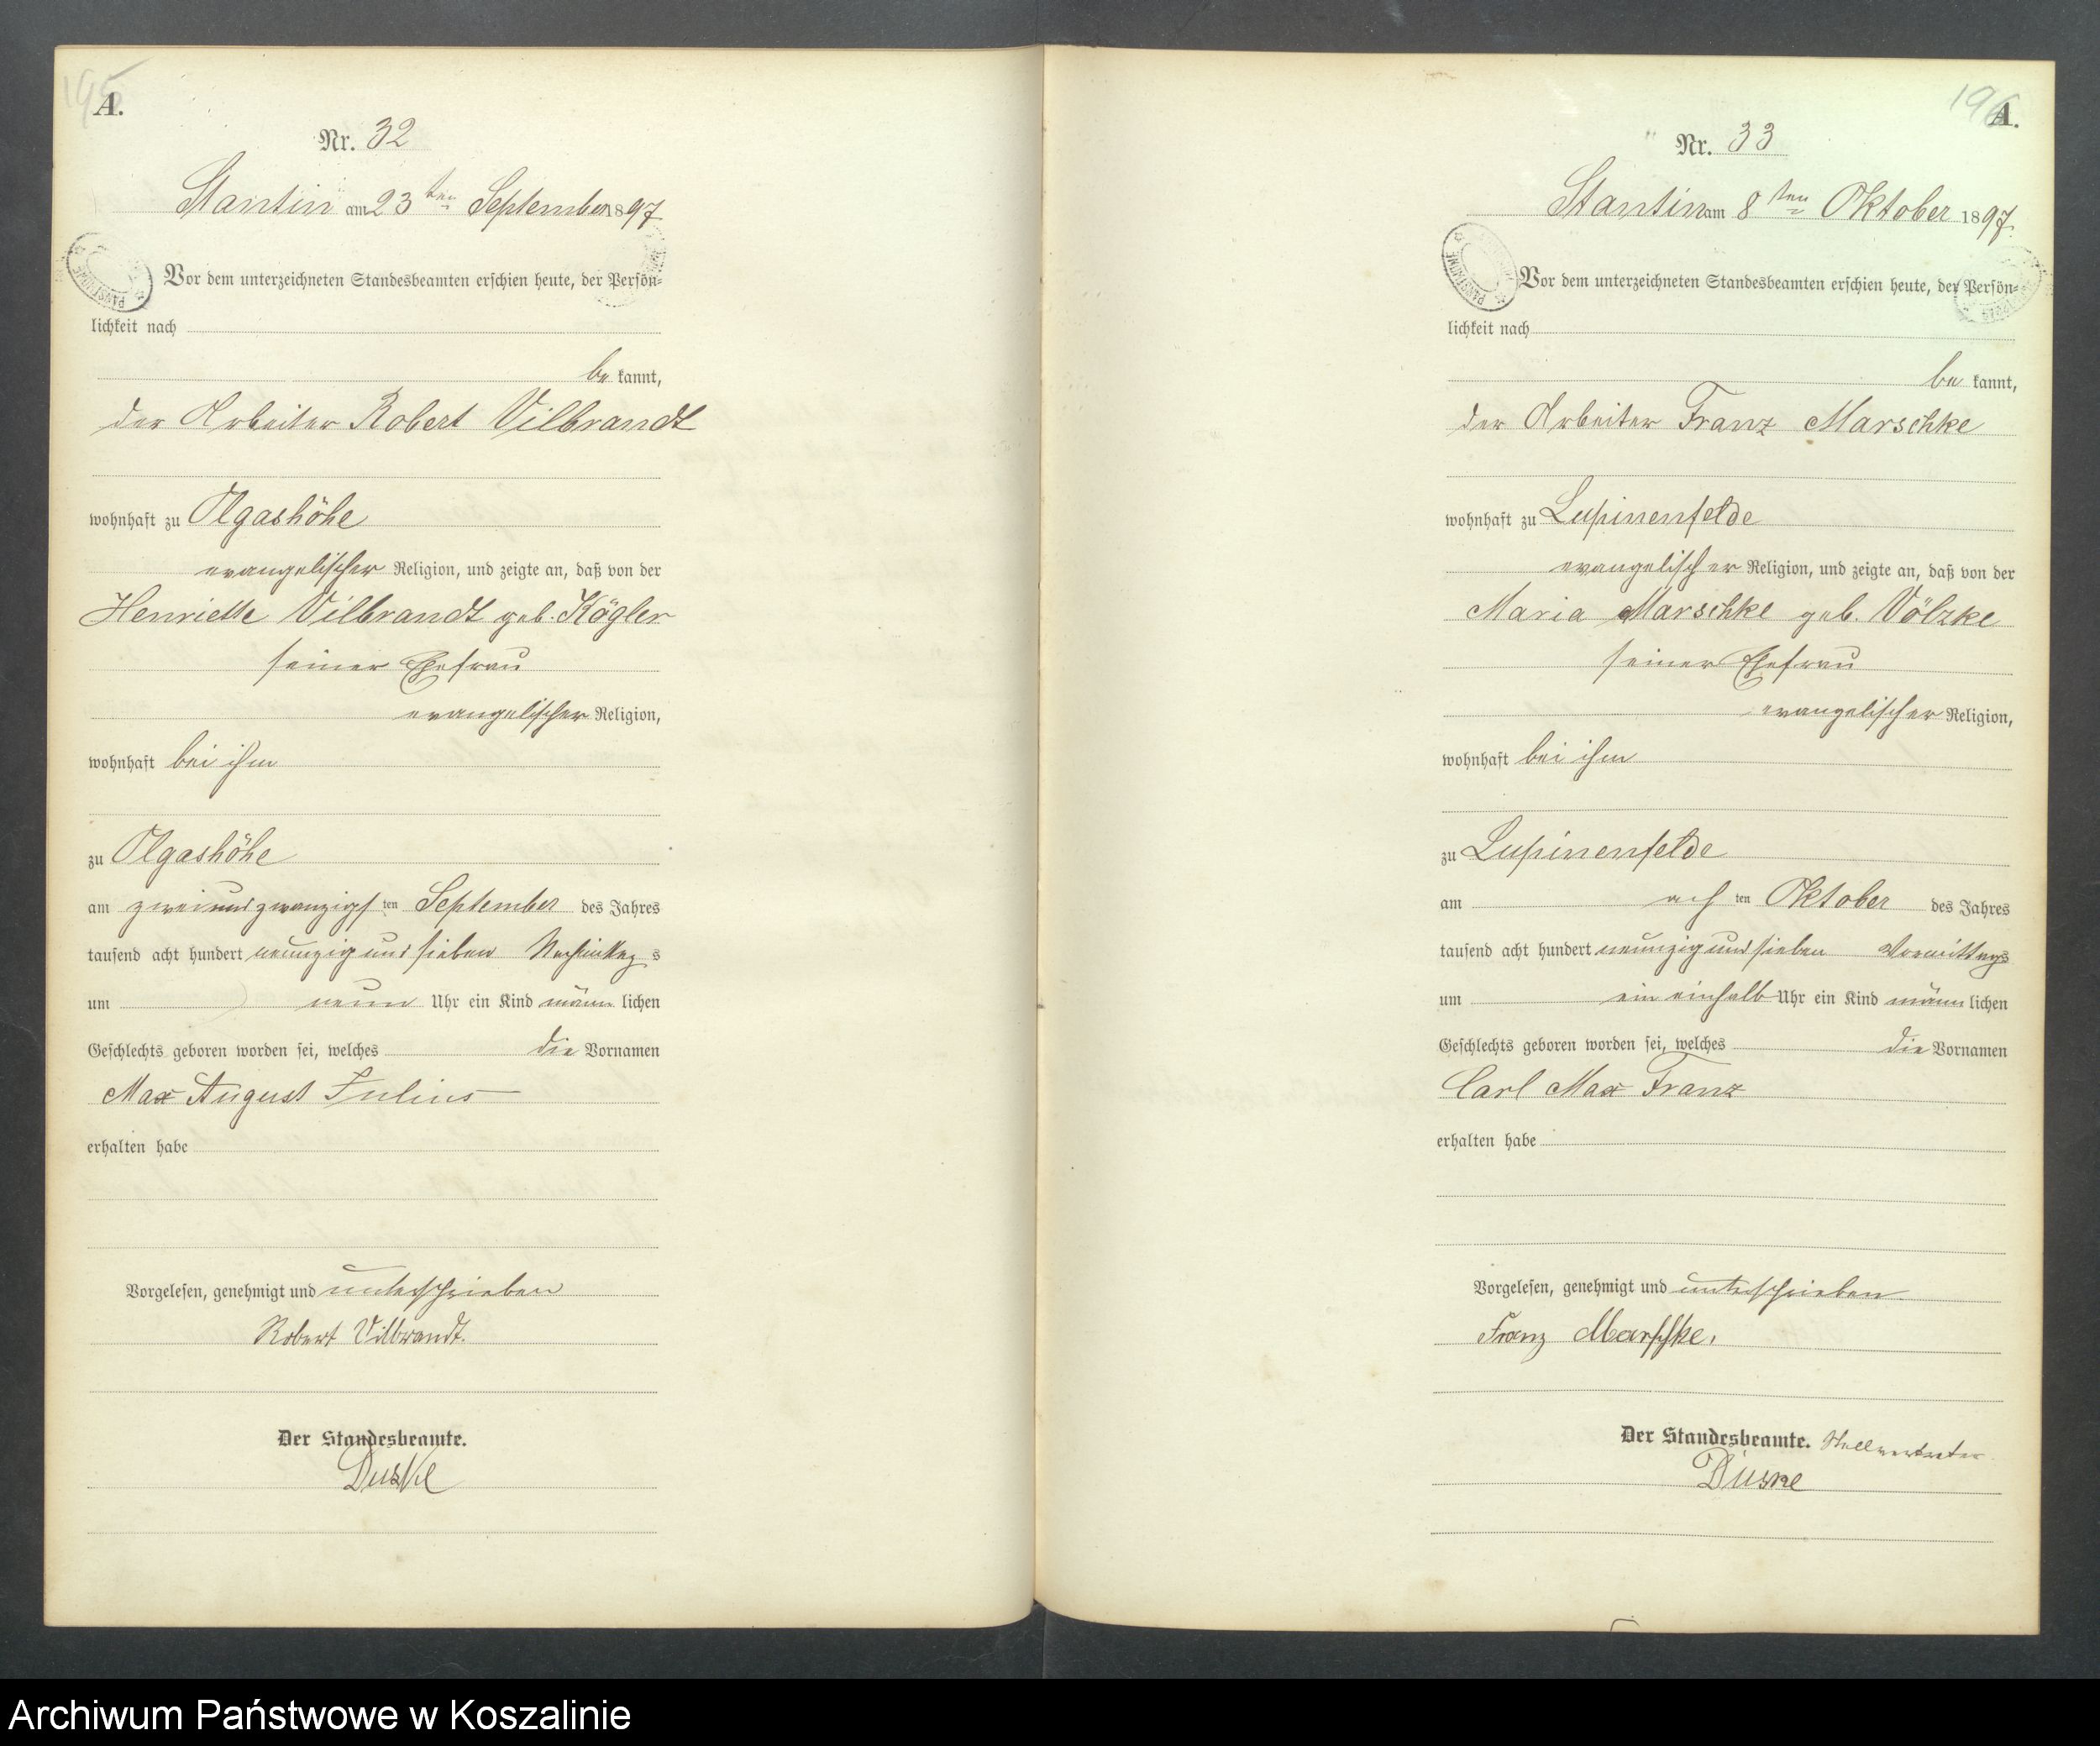 195
A.
Nr. 32
Stantin am 23ten September 1897
Vor dem unterzeichneten Standesbeamten erschien heute, der Persön-
lichkeit nach
be kannt,
der Arbeiter Robert Vilbrandt
wohnhaft zu Olgashöhe
evangelischer Religion, und zeigte an, daß von der
Henriette Vilbrandt geb. Kögler
seiner Ehefrau
evangelischer Religion,
wohnhaft bei ihm
zu Olgashöhe
am zweiundzwanzigsten September des Jahres
tausend acht hundert neunzig und sieben Nachmittags
um neun Uhr ein Kind männlichen
Geschlechts geboren worden sei, welches die Vornamen
Max August Julius
erhalten habe
Vorgelesen, genehmigt und unterschrieben
Robert Vilbrandt.
Der Standesbeamte.
Duske
196
A.
Nr. 33
Stantin am 8ten Oktober 1897.
Vor dem unterzeichneten Standesbeamten erschien heute, der Persön-
lichkeit nach
be kannt,
der Arbeiter Franz Marschke
wohnhaft zu Lupinenfelde
evangelischer Religion, und zeigte an, daß von der
Maria Marschke geb. Völzke
seiner Ehefrau
evangelischer Religion,
wohnhaft bei ihm
zu Lupinenfelde
am achten Oktober des Jahres
tausend acht hundert neunzig und sieben Vormittags
um ein einhalb Uhr ein Kind männlichen
Geschlechts geboren worden sei, welches die Vornamen
Carl Max Franz
erhalten habe
Vorgelesen, genehmigt und unterschrieben
Franz Marschke.
Der Standesbeamte. Stellvertreter
Duske
Archiwum Państwowe w Koszalinie